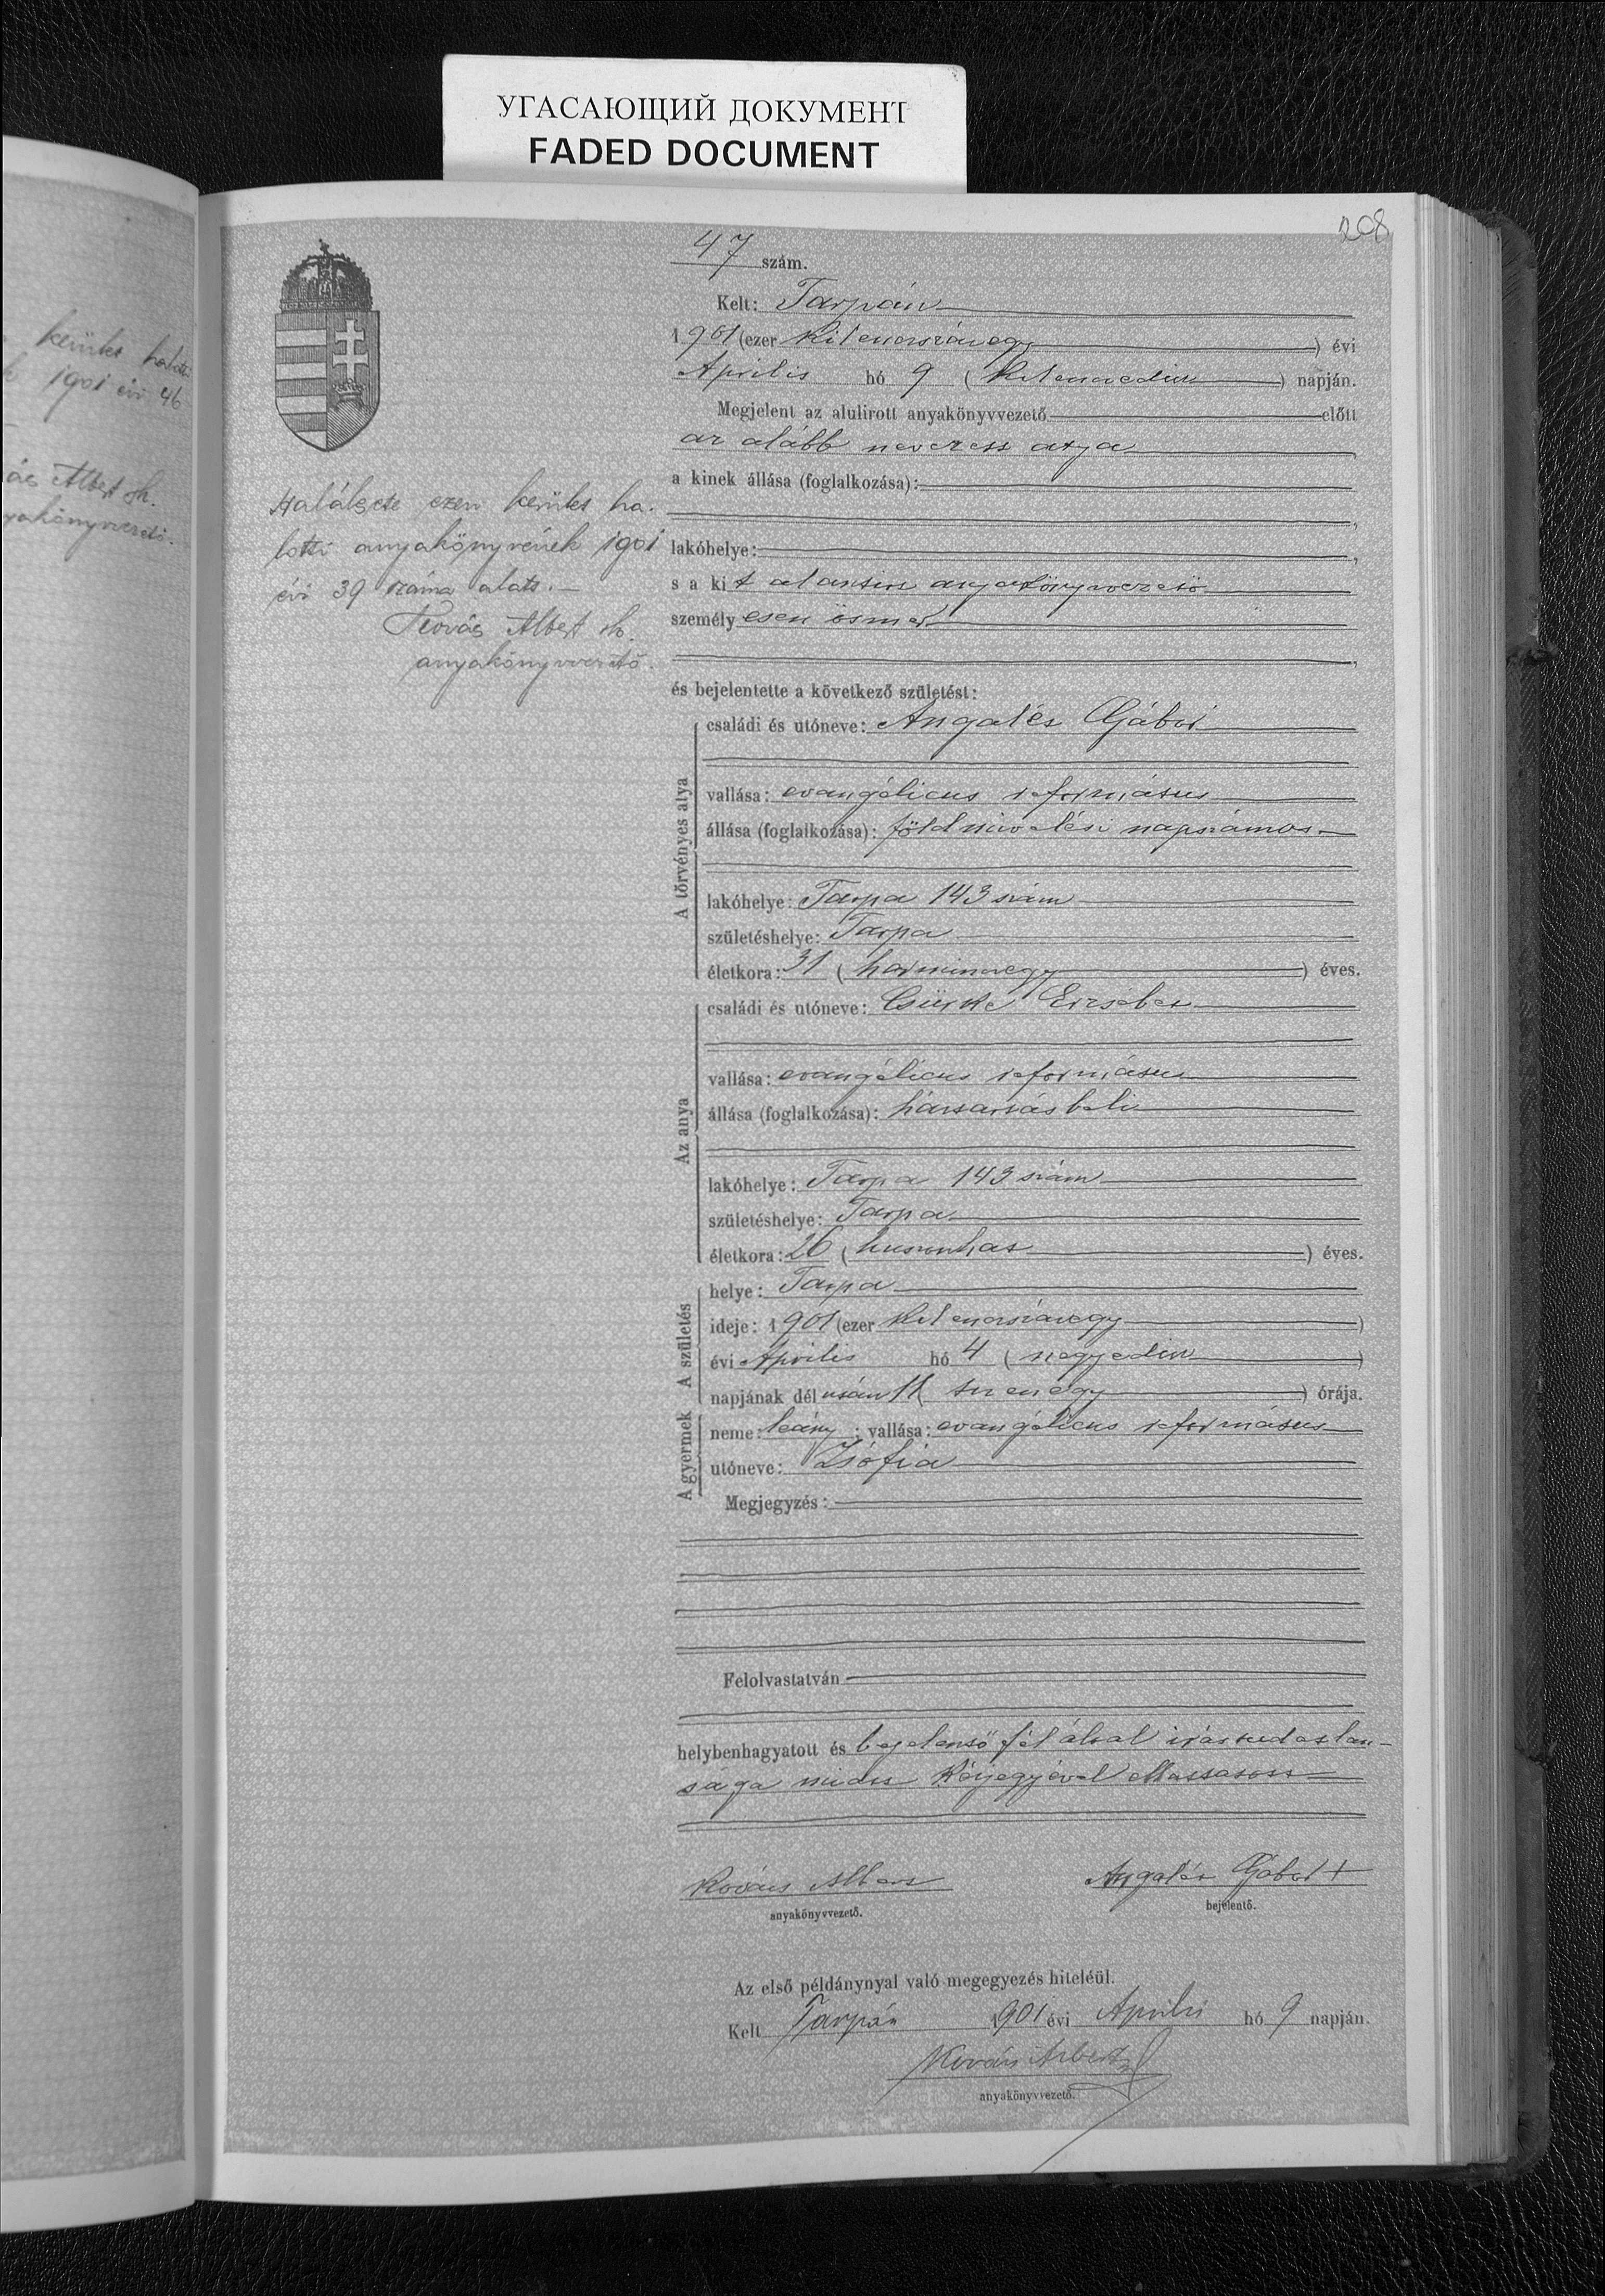 УГАСАЮЩИЙ ДОКУМЕНТ
FADED DOCUMENT
208
47 szám.
Kelt: Tarpán
1901 (ezer kilenczszázegy) évi
Április hó 9 (kilenczedik) napján.
Megjelent az alulirott anyakönyvvezető előtt
az alább nevezett atya
a kinek állása (foglalkozása):
lakóhelye:
s a kit alantirt anyakönyvvezető
személyesen ösmer
és bejelentette a következő születést:
A törvényes atya
családi és utóneve: Angalés Gábor
vallása: evangélicus református
állása (foglalkozása): földmivelési napszámos
lakóhelye: Tarpa 143 szám
születéshelye: Tarpa
életkora: 31 (harminczegy) éves.
Az anya
családi és utóneve: Csürke Erzsébet
vallása: evangélicus református
állása (foglalkozása): háztartásbeli
lakóhelye: Tarpa 143 szám
születéshelye: Tarpa
életkora: 26 (huszonhat) éves.
A születés
helye: Tarpa
ideje: 1901 (ezer kilenczszázegy)
évi Április hó 4 (negyedik)
napjának délután 11 (tizenegy) órája.
A gyermek
neme: leány; vallása: evangélicus református
utóneve: Zsófia
Megjegyzés:
Felolvastatván
helybenhagyatott és bejelentő fél által irástudatlan-
sága miatt kézjegyével elláttatott
Kovács Albert
anyakönyvvezető.
Angalés Gábor +
bejelentő.
Az első példánynyal való megegyezés hiteléül.
Kelt Tarpán 1901 évi Április hó 9 napján.
Kovács Albert
anyakönyvvezető.
Halálesete ezen kerület ha-
lotti anyakönyvének 1901
évi 39 száma alatt.
Kovács Albert sk.
anyakönyvvezető.
kerület halotti
1901 évi 46
Albert sk.